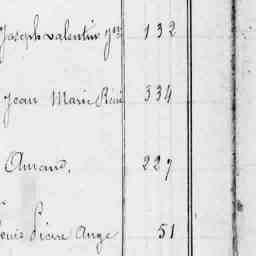 Joseph Valentin Jn 132
Jean Marie René 334
Amand, 227
Louis Pierre Ange 51